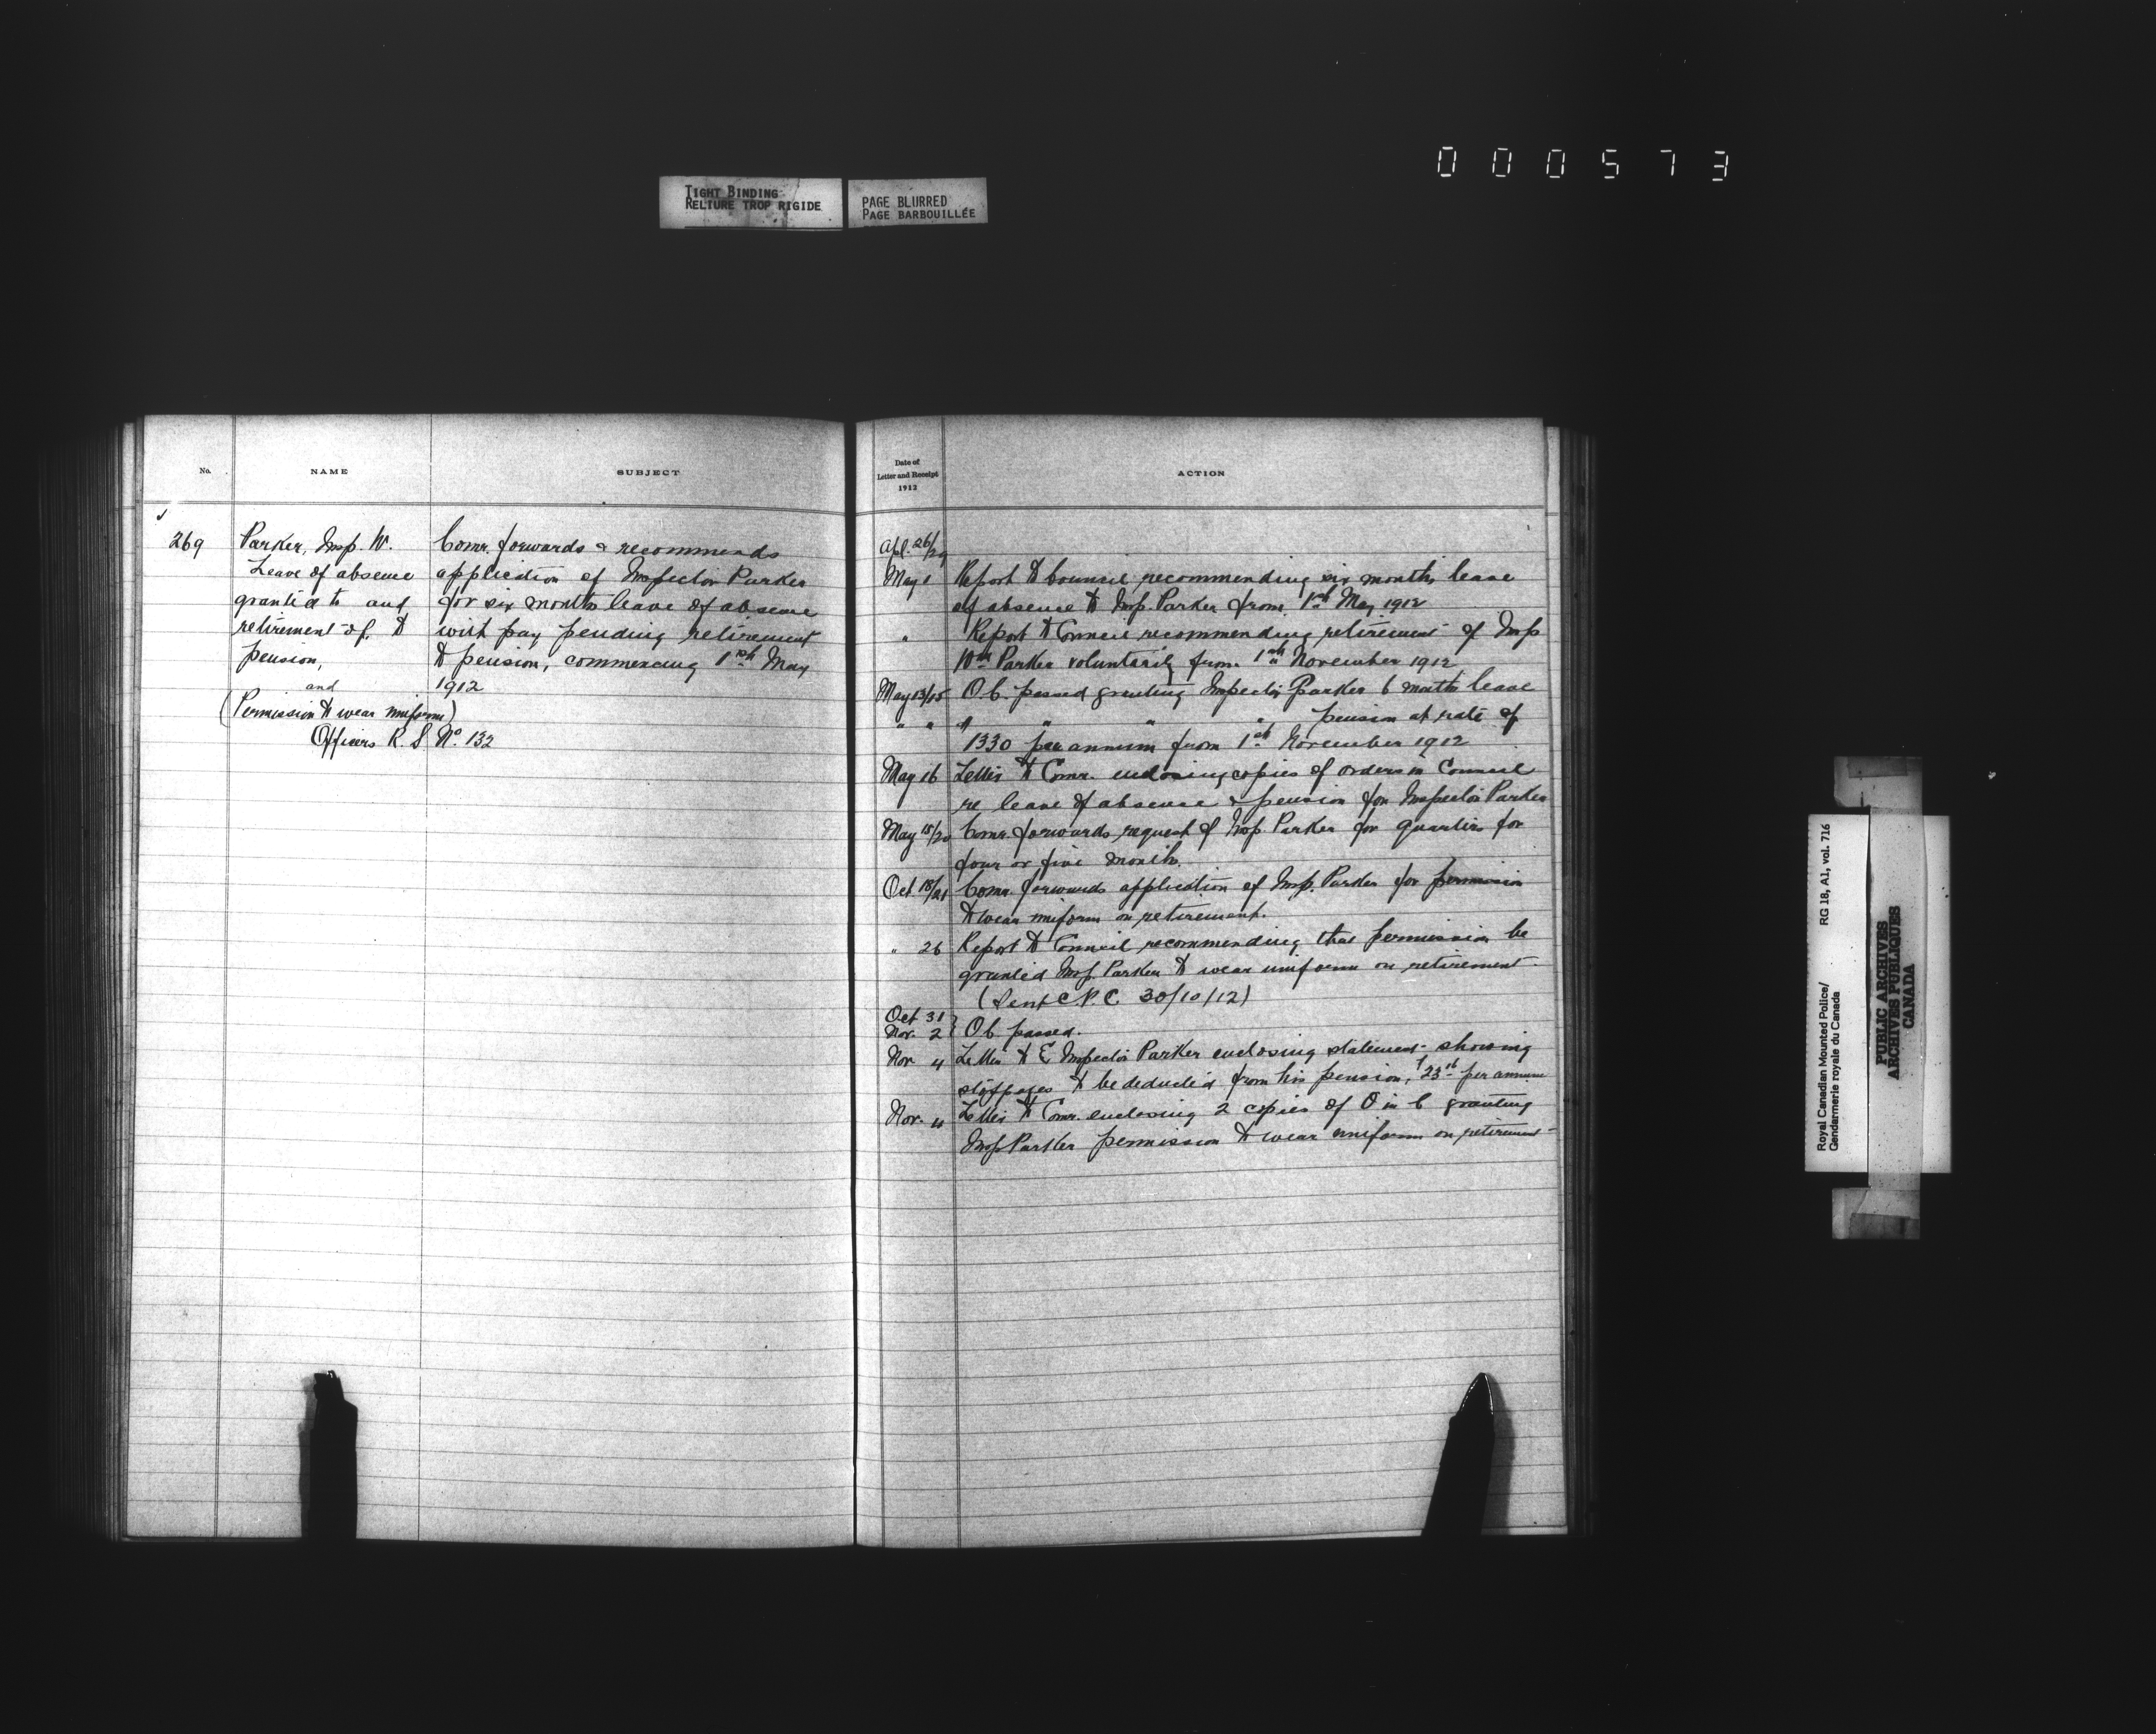 000573
TIGHT BINDING
RELIURE TROP RIGIDE
PAGE BLURRED
PAGE BARBOUILLÉE
No.
NAME
SUBJECT
269
Parker, Insp. W.
Leave of absence
granted to and
retirement of, to
pension,
and
(Permission to wear uniform)
Officers R. S. No. 132
Comr. forwards & recommends
application of Inspector Parker
for six months leave of absence
with pay pending retirement
to pension, commencing 1st May
1912
Date of
Letter and Receipt
1912
ACTION
Apl. 26/29
May 1 Report to Council recommending six months leave
of absence to Insp. Parker from 1st May 1912
" Report to Council recommending retirement of Insp
Wm Parker voluntarily from 1st November 1912
May 13/15 O.C. passed granting Inspector Parker 6 months leave
" " " " " " pension at rate of
1330 per annum from 1st November 1912
May 16 Letter to Comr. enclosing copies of orders in Council
re leave of absence & pension for Inspector Parker
May 15/20 Comr. forwards request of Insp. Parker for quarters for
four or five months.
Oct 18/21 Comr. forwards application of Insp. Parker for permission
to wear uniform on retirement.
" 26 Report to Council recommending that permission be
granted Insp. Parker to wear uniform on retirement
(Sent C.P.C. 30/10/12)
Oct 31
Nov. 2 } O.C. passed.
Nov 4 Letter to Inspector Parker enclosing statement showing
stoppages to be deducted from his pension, per annum
Nov. 4 Letter to Comr. enclosing 2 copies of O in C granting
Insp Parker permission to wear uniform on retirement
Royal Canadian Mounted Police/
Gendarmerie royale du Canada
RG 18, A1, vol. 716
PUBLIC ARCHIVES
ARCHIVES PUBLIQUES
CANADA